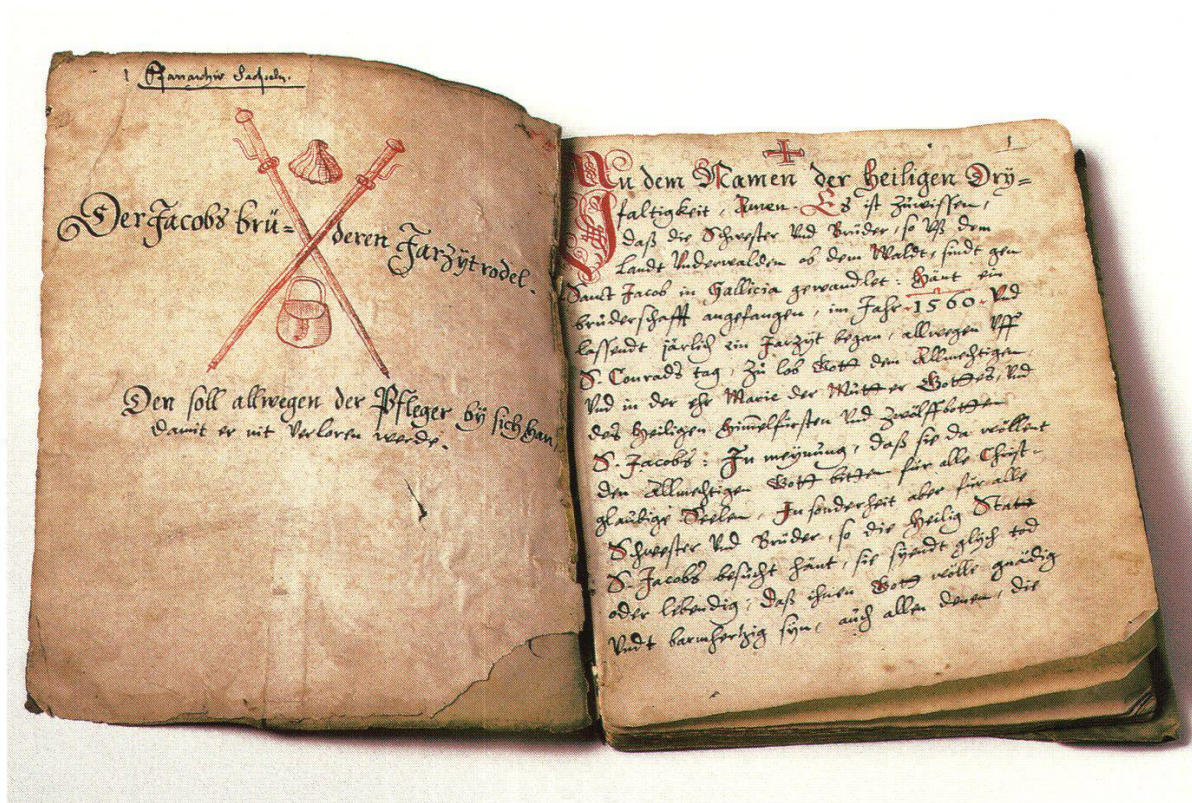 1 Pfarrarchiv Sachseln.
Der Jacobs brü-
deren Jarzÿtrodel.
Den soll allwegen der Pfleger bÿ sich han,
damit er nit verloren werde.
1
In dem Namen der Heiligen Drÿ-
faltigkeit, Amen. Es ist Zůwissen,
daß die Schwester vnd Brüder, so vß dem
Landt Vnderwalden ob dem Waldt, sindt gen
Sanct Jacob in Gallicia gewandlet: Hänt ein
brüderschafft angefangen, im Jahr 1560. vnd
lassendt järlich ein Jarzÿt began, allwegen vff
S. Conrads tag, Zů lob Gott dem Allmechtigen,
Vnd in der ehr Marie der Můtter Gottes, vnd
des Heiligen Himelfürsten vnd Zwölffbotten
S. Jacobs: In meÿnung, daß sie da wöllent
den Allmechtigen Gott bitten für alle Christ-
glaübige Seelen, In sonderheit aber für alle
Schwester vnd Brüder, so die Heilig Statt
S. Jacobs besůcht hänt, sie sÿendt glÿch tod
oder lebendig, daß ihnen Gott wölle gnädig
Vndt barmhertzig sÿn, aůch allen denen, die